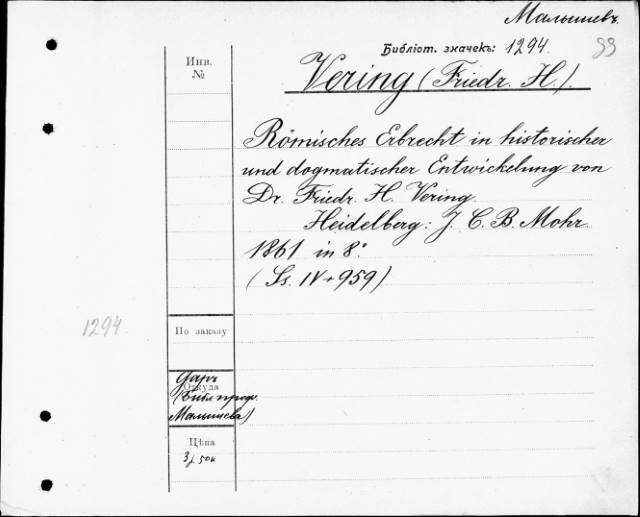 Малышевъ.
Библіот. значекъ: 1294. 99
Инв. №
Vering (Friedr. H.).
Römisches Erbrecht in historischer
und dogmatischer Entwickelung von
Dr. Friedr. H. Vering.
Heidelberg: J. C. B. Mohr.
1861 in 8°.
(Ss. IV + 959)
1294
По заказу
Откуда
Даръ
(Библ. проф.
Малышева)
Цѣна
3 р 50 к